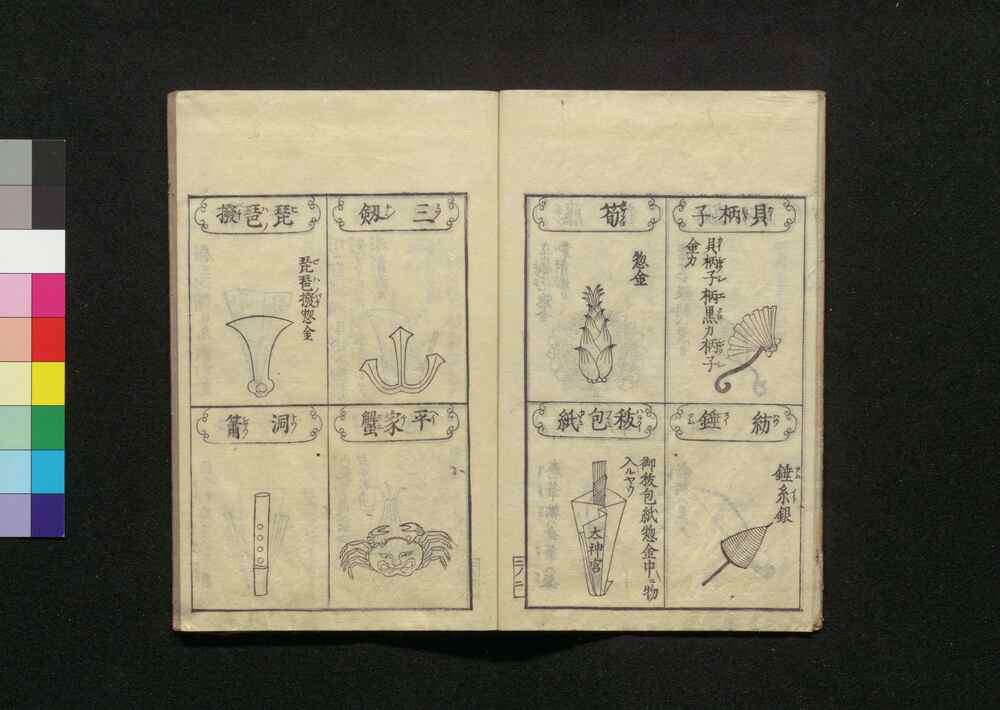 貝柄子
貝柄子柄黒カ柄子
金カ
筍
惣金
紡錘
錘糸銀
秡包紙
御秡包紙惣金中ニ物
入ルヤウ
太神宮
三劔
琵琶撥
琵琶撥惣金
平家蟹
洞簫